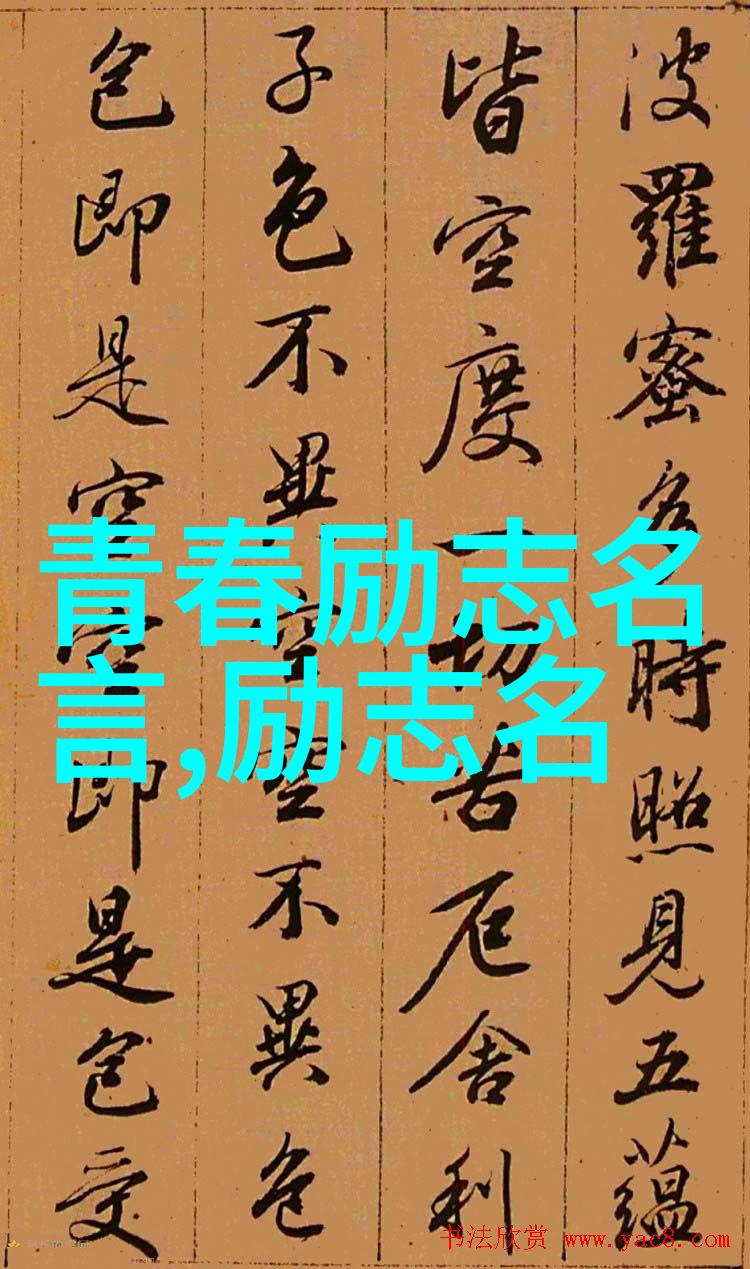 波羅蜜多時照見五蘊
皆空度一切苦厄舍利
子色不異空空不異色
色即是空空即是色受
青春励志名
言,励志名
书法欣赏 www.yac8.com